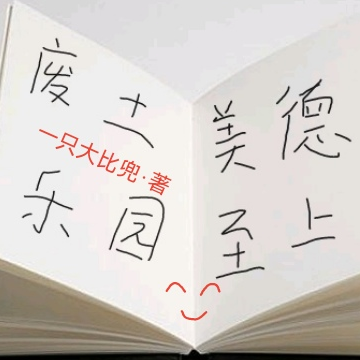 废土
一只大比兜·著
乐园
美德
至上